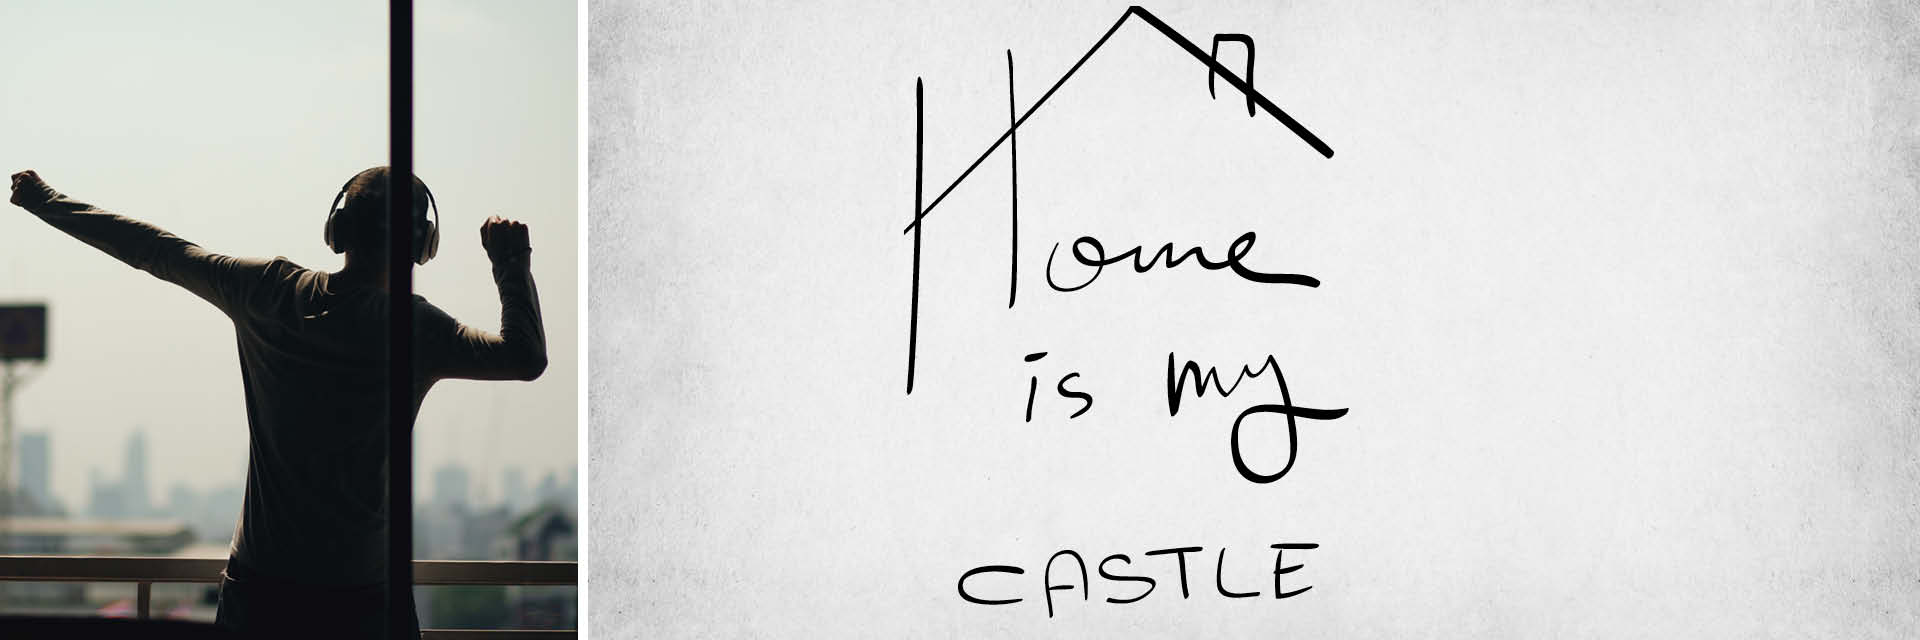 Home
is my
CASTLE